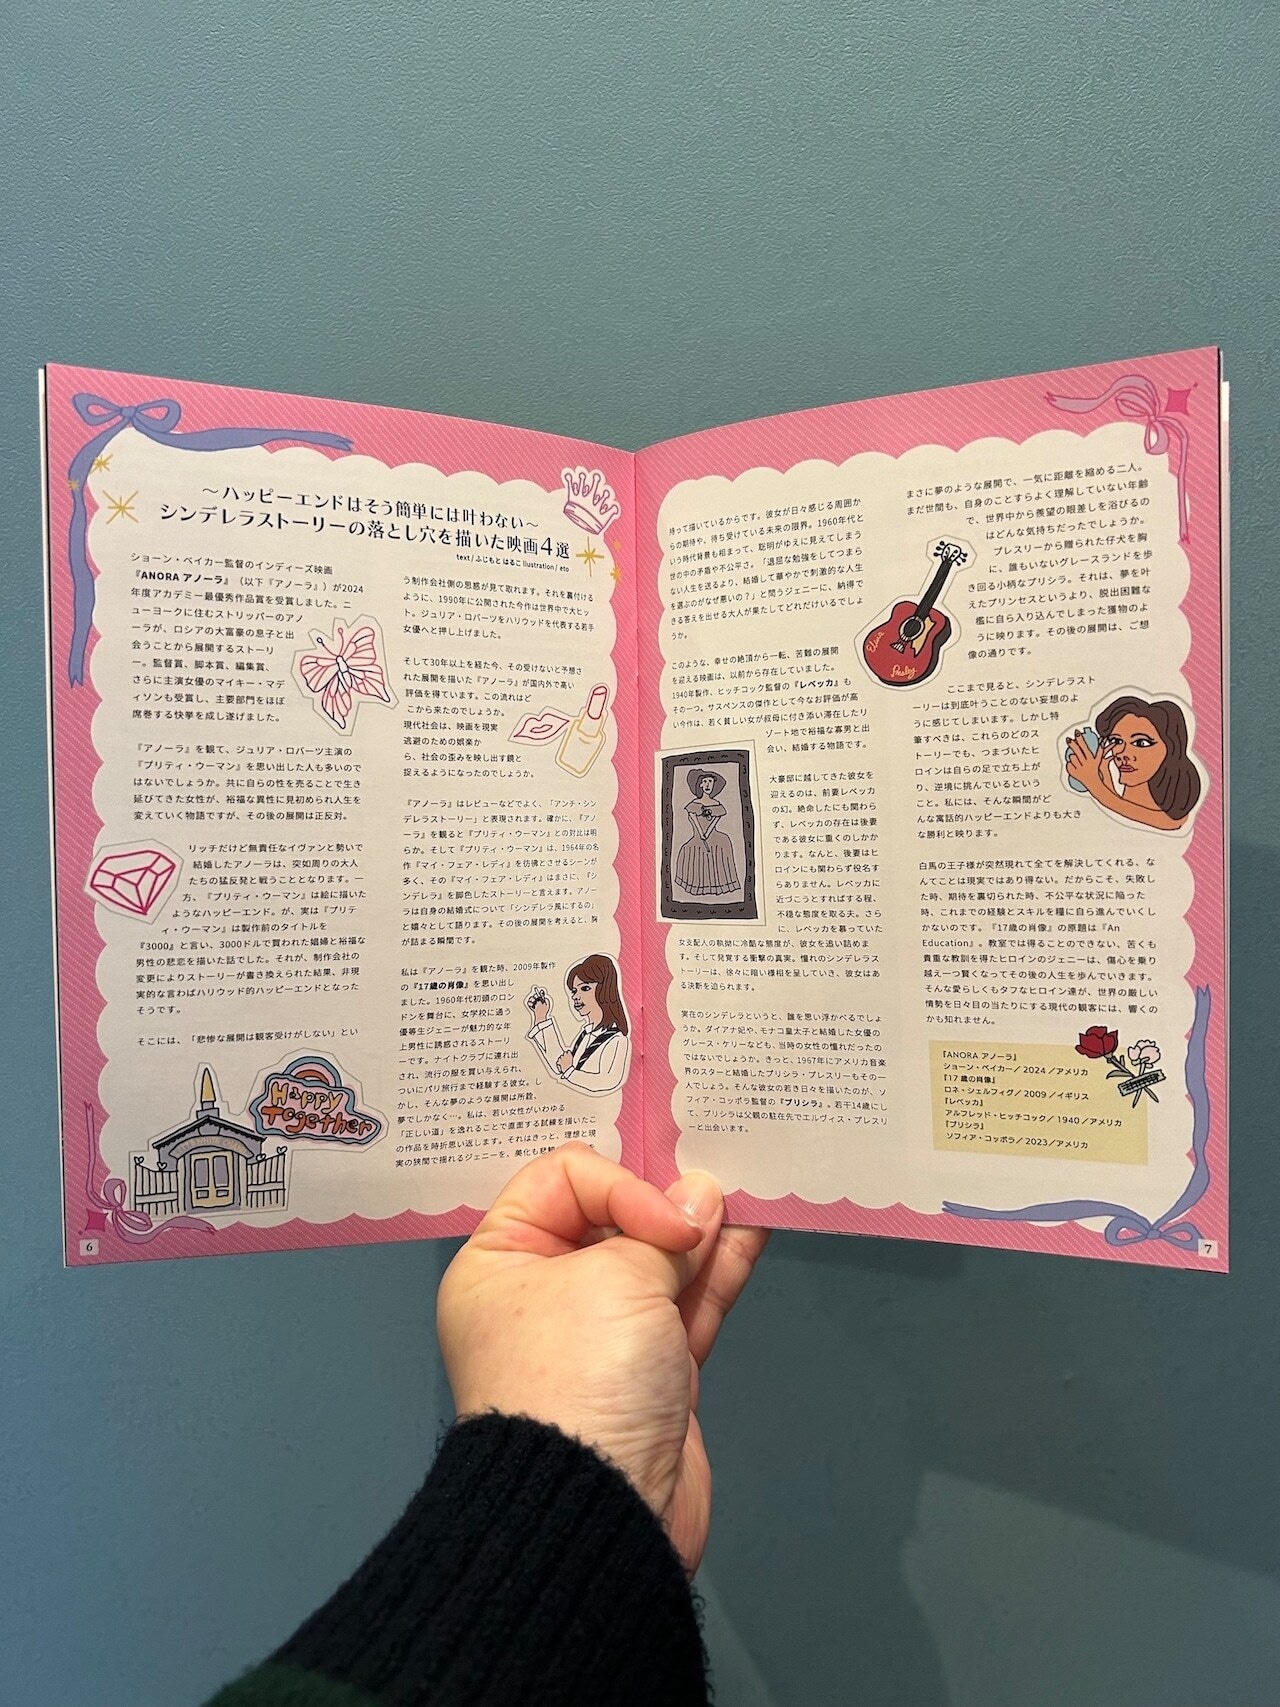 〜ハッピーエンドはそう簡単には叶わない〜
シンデレラストーリーの落とし穴を描いた映画4選
text / ふじもと はるこ illustration / eto
ショーン・ベイカー監督のインディーズ映画
『ANORA アノーラ』（以下『アノーラ』）が2024
年度アカデミー最優秀作品賞を受賞しました。ニ
ューヨークに住むストリッパーのアノ
ーラが、ロシアの大富豪の息子と出
会うことから展開するストーリ
ー。監督賞、脚本賞、編集賞、
さらに主演女優のマイキー・マデ
ィソンも受賞し、主要部門をほぼ
席巻する快挙を成し遂げました。
『アノーラ』を観て、ジュリア・ロバーツ主演の
『プリティ・ウーマン』を思い出した人も多いので
はないでしょうか。共に自らの性を売ることで生き
延びてきた女性が、裕福な異性に見初められ人生を
変えていく物語ですが、その後の展開は正反対。
リッチだけど無責任なイヴァンと勢いで
結婚したアノーラは、突如周りの大人
たちの猛反発と戦うこととなります。一
方、『プリティ・ウーマン』は絵に描いた
ようなハッピーエンド。が、実は『プリテ
ィ・ウーマン』は製作前のタイトルを
『3000』と言い、3000ドルで買われた娼婦と裕福な
男性の悲恋を描いた話でした。それが、制作会社の
変更によりストーリーが書き換えられた結果、非現
実的な言わばハリウッド的ハッピーエンドとなった
そうです。
そこには、「悲惨な展開は観客受けがしない」とい
Happy
Together
う制作会社側の思惑が見て取れます。それを裏付ける
ように、1990年に公開された今作は世界中で大ヒッ
ト。ジュリア・ロバーツをハリウッドを代表する若手
女優へと押し上げました。
そして30年以上を経た今、その受けないと予想さ
れた展開を描いた『アノーラ』が国内外で高い
評価を得ています。この流れはど
こから来たのでしょうか。
現代社会は、映画を現実
逃避のための娯楽か
ら、社会の歪みを映し出す鏡と
捉えるようになったのでしょうか。
『アノーラ』はレビューなどでよく、「アンチ・シン
デレラストーリー」と表現されます。確かに、『アノ
ーラ』を観ると『プリティ・ウーマン』との対比は明
らか。そして『プリティ・ウーマン』は、1964年の名
作『マイ・フェア・レディ』を彷彿とさせるシーンが
多く、その『マイ・フェア・レディ』はまさに、『シン
デレラ』を脚色したストーリーと言えます。アノー
ラは自身の結婚式について「シンデレラ風にするの」
と嬉々として語ります。その後の展開を考えると、胸
が詰まる瞬間です。
私は『アノーラ』を観た時、2009年製作
の『17歳の肖像』を思い出し
ました。1960年代初頭のロン
ドンを舞台に、女学校に通う
優等生ジェニーが魅力的な年
上男性に誘惑されるストーリ
ーです。ナイトクラブに連れ出
され、流行の服を買い与えられ、
ついにパリ旅行まで経験する彼女。し
かし、そんな夢のような展開は所詮、
夢でしかなく…。私は、若い女性がいわゆる
「正しい道」を逸れることで直面する試練を描いたこ
の作品を時折思い返します。それはきっと、理想と現
実の狭間で揺れるジェニーを、美化も
6
持って描いているからです。彼女が日々感じる周囲か
らの期待や、待ち受けている未来の限界。1960年代と
いう時代背景も相まって、聡明がゆえに見えてしまう
世の中の矛盾や不公平さ。「退屈な勉強をしてつまら
ない人生を送るより、結婚して華やかで刺激的な人生
を選ぶのがなぜ悪いの？」と問うジェニーに、納得で
きる答えを出せる大人が果たしてどれだけいるでしょ
うか。
このような、幸せの絶頂から一転、苦難の展開
を迎える映画は、以前から存在していました。
1940年製作、ヒッチコック監督の『レベッカ』も
その一つ。サスペンスの傑作として今なお評価が高
い今作は、若く貧しい女が叔母に付き添い滞在したリ
ゾート地で裕福な寡男と出
会い、結婚する物語です。
大豪邸に越してきた彼女を
迎えるのは、前妻レベッカ
の幻。絶命したにも関わら
ず、レベッカの存在は後妻
である彼女に重くのしかか
ります。なんと、後妻はヒ
ロインにも関わらず役名す
らありません。レベッカに
近づこうとすればする程、
不穏な態度を取る夫。さら
に、レベッカを慕っていた
女支配人の執拗に冷酷な態度が、彼女を追い詰めま
す。そして発覚する衝撃の真実。憧れのシンデレラス
トーリーは、徐々に暗い様相を呈していき、彼女はあ
る決断を迫られます。
実在のシンデレラというと、誰を思い浮かべるでしょ
うか。ダイアナ妃や、モナコ皇太子と結婚した女優の
グレース・ケリーなども、当時の女性の憧れだったの
ではないでしょうか。きっと、1967年にアメリカ音楽
界のスターと結婚したプリシラ・プレスリーもその一
人でしょう。そんな彼女の若き日々を描いたのが、ソ
フィア・コッポラ監督の『プリシラ』。若干14歳にし
て、プリシラは父親の駐在先でエルヴィス・プレスリ
ーと出会います。
まさに夢のような展開で、一気に距離を縮める二人。
まだ世間も、自身のことすらよく理解していない年齢
で、世界中から羨望の眼差しを浴びるの
はどんな気持ちだったでしょうか。
プレスリーから贈られた仔犬を胸
に、誰もいないグレースランドを歩
き回る小柄なプリシラ。それは、夢を叶
えたプリンセスというより、脱出困難な
檻に自ら入り込んでしまった獲物のよ
うに映ります。その後の展開は、ご想
像の通りです。
Elvis
Presley
ここまで見ると、シンデレラスト
ーリーは到底叶うことのない妄想のよ
うに感じてしまいます。しかし特
筆すべきは、これらのどのス
トーリーでも、つまづいたヒ
ロインは自らの足で立ち上が
り、逆境に挑んでいるという
こと。私には、そんな瞬間がど
んな寓話的ハッピーエンドよりも大き
な勝利と映ります。
白馬の王子様が突然現れて全てを解決してくれる、な
んてことは現実ではあり得ない。だからこそ、失敗し
た時、期待を裏切られた時、不公平な状況に陥った
時、これまでの経験とスキルを糧に自ら進んでいくし
かないのです。『17歳の肖像』の原題は『An
Education』。教室では得ることのできない、苦くも
貴重な教訓を得たヒロインのジェニーは、傷心を乗り
越え一つ賢くなってその後の人生を歩んでいきます。
そんな愛らしくもタフなヒロイン達が、世界の厳しい
情勢を日々目の当たりにする現代の観客には、響くの
かも知れません。
『ANORA アノーラ』
ショーン・ベイカー／2024／アメリカ
『17歳の肖像』
ロネ・シェルフィグ／2009／イギリス
『レベッカ』
アルフレッド・ヒッチコック／1940／アメリカ
『プリシラ』
ソフィア・コッポラ／2023／アメリカ
7